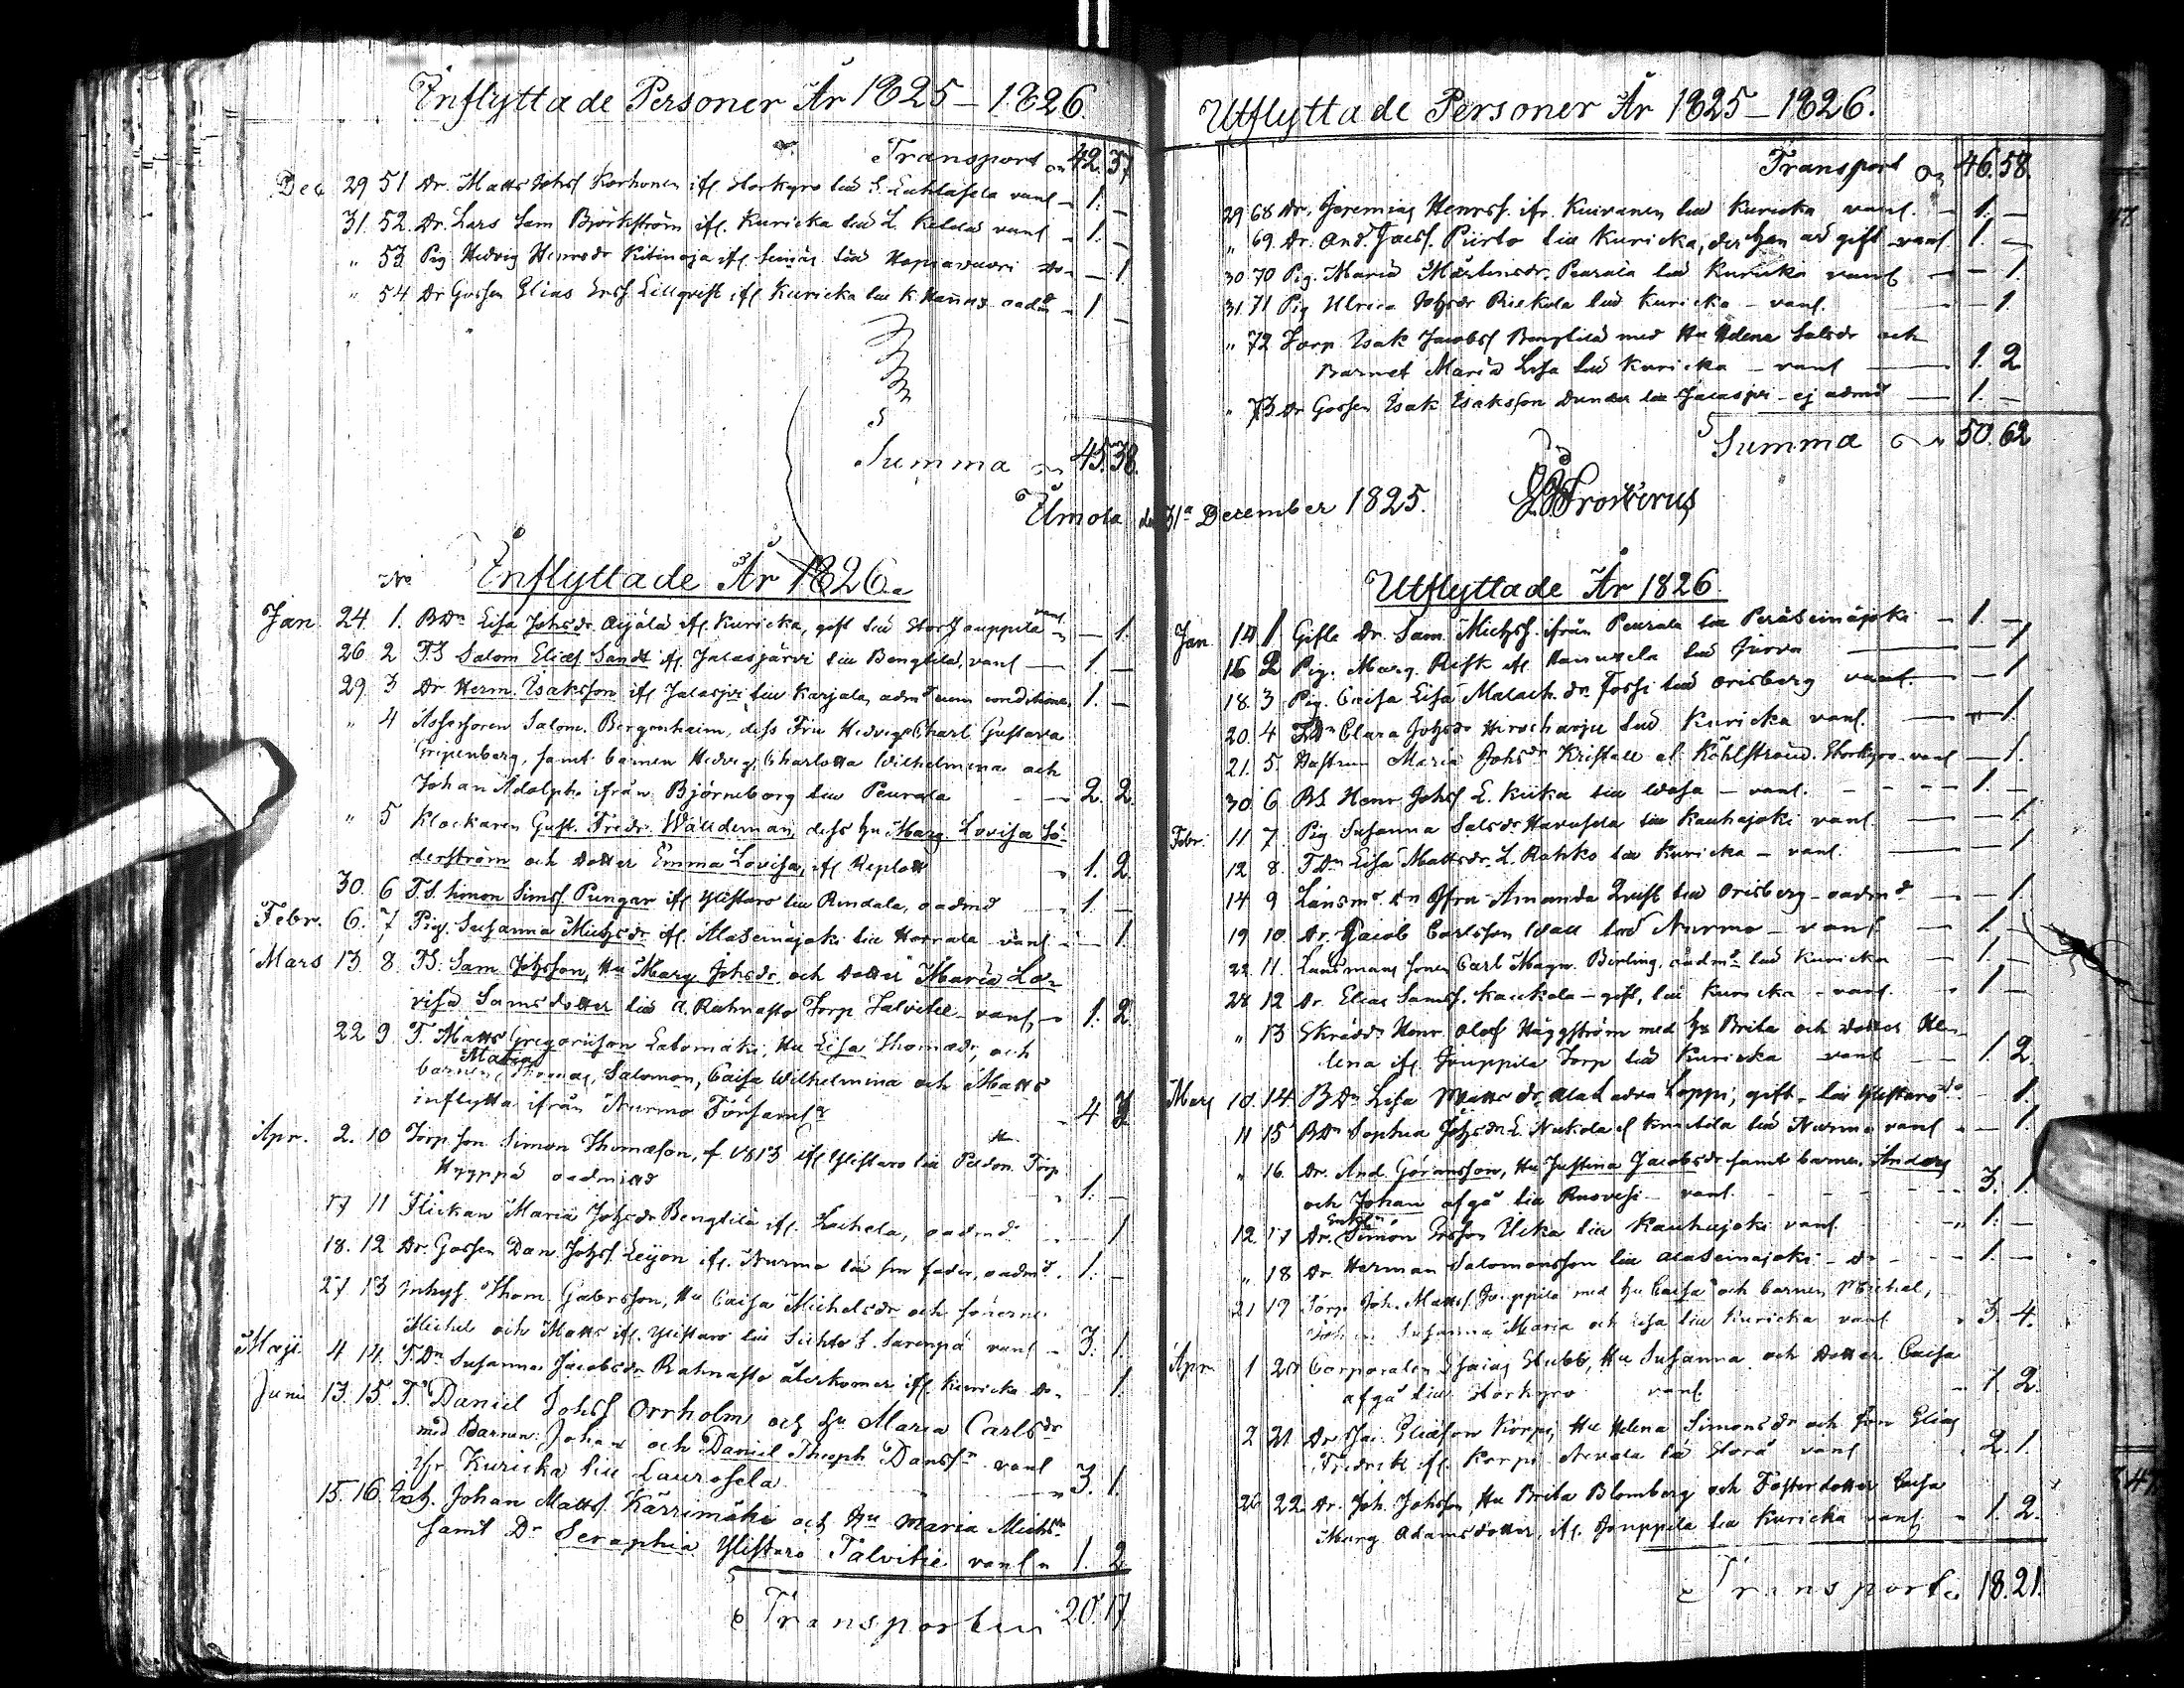 Inflyttade Personer År 1825–1826.
Transport 42. 37
Dec 29 51 Dr. Matts Johss Korhonen ifr. Storkyro vanl – 1. –
31. 52. Dr. Lars Sam Björkström ifr. Kuricka till L. vanl – 1. –
" 53 Pig. Hedvig Henrsdr ifr. till – 1.
" 54 Dr Gossen Elias Erss Lillqvist ifr. Kuricka till K. 1 –
Summa 45. 38.
Inflyttade År 1826.
No
Jan. 24 1. BDr Lisa Johsdr Äijälä ifr. Kuricka, gift till Jouppila vanl – 1.
26 2 T.S Salom Eliæs Sandt ifr. Jalasjärvi till Bengtila, vanl – 1. –
29. 3 Dr. Herm. Isaksson ifr Jalasjvi till Karjala, 1. –
" 4 Assessoren Salom. Bergenheim, dess Fru Hedvig Charl Gustava
Gripenberg, samt barnen Hedvig Charlotta Wilhelmina och
Johan Adolph ifrån Björneborg till Peurala – 2. 2.
" 5 Klockaren Gust. Fredr. Walldeman, dess hu Marg. Lovisa Sö-
derström och dotter Emma Lovisa, ifr Replott 1. 2.
30. 6 T.S. Simon Simss Pungar ifr Ylistaro till Rindala, oadmd 1. –
Febr. 6. 7 Pig. Susanna Michsdr ifr. Alaseinäjoki till vanl – 1.
Mars 13 8. TS. Sam Johsson, Hu Marg Johsdr och dotter Maria Lo-
visa Samsdotter till A. Rahnasto Torp Talvitie – vanl 1. 2
22 9 T. Matts Gregorison Latomäki, Hu Lisa Thomædr, och
Maria
barnen Thomas, Salomon, Caisa Wilhelmina och Matts
inflytta ifrån Nurmo Församl 4 3
Apr. 2. 10 Torp. son Simon Thomæson, f. 1813 ifr Ylistaro till Torp
oadmind 1. –
17 11 Flickan Maria Johsdr Bengtila ifr. oadmd – 1
18. 12 Dr. Gossen Dan. Johss Leijon ifr. Nurmo till sin fader, oadmd. 1. –
27 13 Inhys. Thom. Gabrsson, Hu Caisa Michelsdr och sönerne
Michel och Matts ifr. Ylistaro till vanl – 3. 1.
Maji 4 14. T.Dr Susanna Jacobsdr Rahnasto återkomer ifr. Kuricka do – 1.
Juni 13. 15. T. Daniel Johss Orrholm och hu Maria Carlsdr
med Barnen Johan och Daniel Theoph Danssn vanl
ifr Kuricka till Laurosela 3. 1.
15. 16. Johan Mattss Kärrimäki och Hu Maria Michsdr
samt Dr Seraphia Ylistaro Talvitie vanl 1. 2
Transporteras 20. 17
Utflyttade Personer År 1825–1826.
Transport 46. 58.
29 68 Dr. Jeremias Henrss. ifr. Kuivanen till Kuricka vanl. – 1. –
" 69. Dr. And. Jacss. Piirto till Kuricka, der han är gift – vanl 1. –
30 70 Pig. Maria Mårtensdr. Peurala till Kuricka vanl – 1.
31. 71 Pig Ulrica Johsdr Riekola till Kuricka – vanl. – 1.
" 72 Torp. Isak Jacobss Bengtila med Hu Helena Salsdr och
Barnet Maria Lisa till Kuricka – vanl – 1. 2
" 73 Dr Gossen Isak Isaksson till Jalasjvi – ej admd – 1. –
Summa 50. 62
Ilmola den 31a December 1825. Frosterus
Utflyttade År 1826.
Jan. 14 1 Gifte Dr. Sam. Michss. ifrån Peurala till Peräseinäjoki – 1. –
16 2 Pig. Marg. Risk ifr. till – 1
18. 3 Pig. Caisa Lisa Malach. dr. Fossi till Orisberg vanl. – 1
20. 4 TDr Clara Johsdr Hirvoharju till Kuricka vanl. – 1.
21. 5. Hustrun Maria Johsdr Kristall Storkyro – vanl – 1.
30. 6 BS Henr. Johss L. Kiika till Wasa – vanl. – 1. –
Febr. 11 7. Pig. Susanna Salsdr till Kauhajoki vanl – 1
12 8. TDr Lisa Mattsdr. L. Rahko till Kuricka – vanl. – 1
14 9 Länsms. dr Jfru Amanda Qvist till Orisberg – oadmd – 1.
19 10. Dr. Jacob Carlsson Wall till Nurmo – vanl – 1. –
22. 11. Länsmans sonen Carl Magn. Berling, oadmd till Kuricka – 1. –
28 12 Dr. Elias Samss. Kaukola – gift, till Kuricka – vanl. – 1 –
" 13 Skrädd. Henr. Olof Häggström med hu Brita och dotter He-
lena ifr. Jouppila Torp till Kuricka vanl – 1. 2.
Mars 10. 14. BDr Lisa Mattsdr, Loppi, gift – till Ylistaro do – 1.
11 15 BDr Sophia Johsdr L. till Nurmo vanl – 1.
" 16. Dr. And. Göransson, Hu Justina Jacobsdr samt barnen Anders
och Johan afgå till Ruovesi – vanl. – 3. 1.
12. 17 Dr. Enkl. Simon Ersson till Kauhajoki vanl. 1. –
" 18 Dr. Herman Salomonsson till Alaseinäjoki – do – 1. –
21 19 Torp. Joh. Matts. Jouppila med hu Caisa och barnen Michel,
Johan Susanna Maria och Lisa till Kuricka vanl 3. 4.
Apr. 1 20 Corporalen Esaias Stubb, Hu Susanna och dotter Caisa
afgå till Storkyro vanl. 1. 2.
2 21 Dr Isac Eliæson Korpi, Hu Helena Simonsdr och son Elias
Fredrik ifr. Korpi till Storå vanl 2. 1.
26 22. Dr. Joh. Johsson Hu Brita Blomberg och Fosterdotter Caisa
Marg. Adamsdotter, ifr. Jouppila till Kuricka vanl 1. 2.
Transporteras 18. 21.